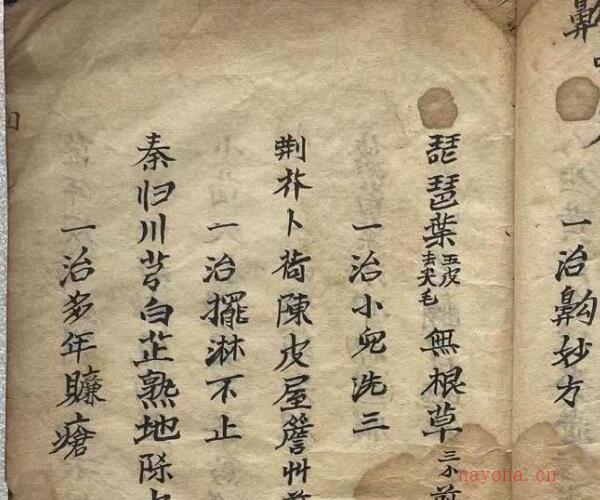 鼻
一治鼻妙方
琵琶葉五皮去尖毛無根草三小
一治小兒洗三
荆芥卜荷陳皮屋簷艸
一治擺淋不止
秦归川芎白芷熟地陈
一治多年臁瘡
nayona.cn